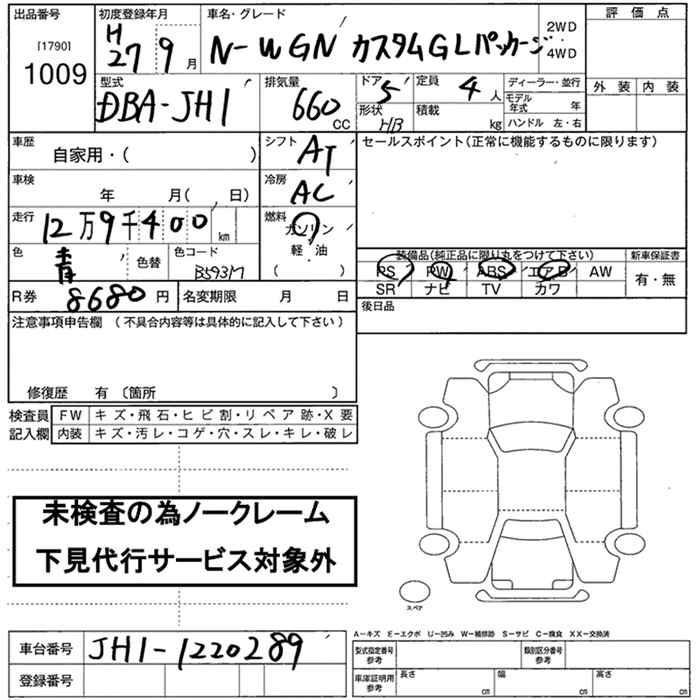 出品番号 初度登録年月 車名・グレード 2WD ・ 4WD 評 価 点
[1790] 1009
H 27 9 月
N-WGN カスタムGLパッケージ
外 装 内 装
型式 DBA-JH1
排気量 660 CC
ドア 5 定員 4 人 ディーラー・並行
形状 HB 積載 kg モデル年式 年
ハンドル 左・右
車歴 自家用・( )
シフト AT
セールスポイント(正常に機能するものに限ります)
車検 年 月( 、 日)
冷房 AC
走行 12万9千400 km
燃料 ガソリン 軽・油 ( )
色 青 色替 色コード B593M
装備品(純正品に限り丸をつけて下さい) 新車保証書
PS PW ABS エアB AW 有・無
SR ナビ TV カワ
R券 8680 円 名変期限 月 日
後日品
注意事項申告欄 (不具合内容等は具体的に記入して下さい)
修復歴 有 〔箇所 〕
検査員 FW キズ・飛石・ヒビ割・リペア跡・X要
記入欄 内装 キズ・汚レ・コゲ・穴・スレ・キレ・破レ
未検査の為ノークレーム
下見代行サービス対象外
スペア
車台番号 JH1-1220289
登録番号
A-キズ E-エクボ U-凹み W-補修跡 S-サビ C-腐食 XX-交換済
型式指定番号 参考 類別区分番号 参考
車庫証明用 参考 長さ cm 幅 cm 高さ cm